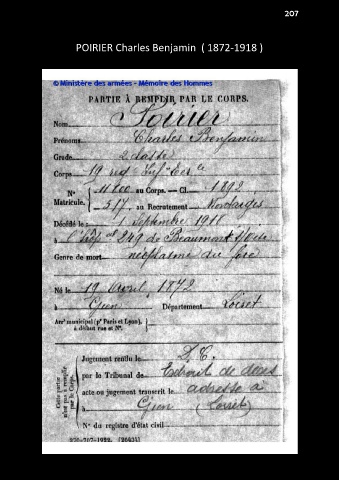 207
POIRIER Charles Benjamin ( 1872-1918 )
© Ministère des armées - Mémoire des Hommes
PARTIE À REMPLIR PAR LE CORPS.
Nom Poirier
Prénoms Charles Benjamin
Grade 2e classe
Corps 19
N° Matricule. 11800 au Corps. — Cl. 1892
517 au Recrutement
Décédé le 1 Septembre 1918
à 249 de Beaumont s/Oise
Genre de mort néoplasme du foie
Né le 19 Avril 1872
à Gien Département Loiret
Arrt municipal (pr Paris et Lyon), à défaut rue et N°.
Cette partie n'est pas à remplir par le Corps.
Jugement rendu le D.C.
par le Tribunal de Extrait de décès
acte ou jugement transcrit le adressé à
à Gien (Loiret)
N° du registre d'état civil